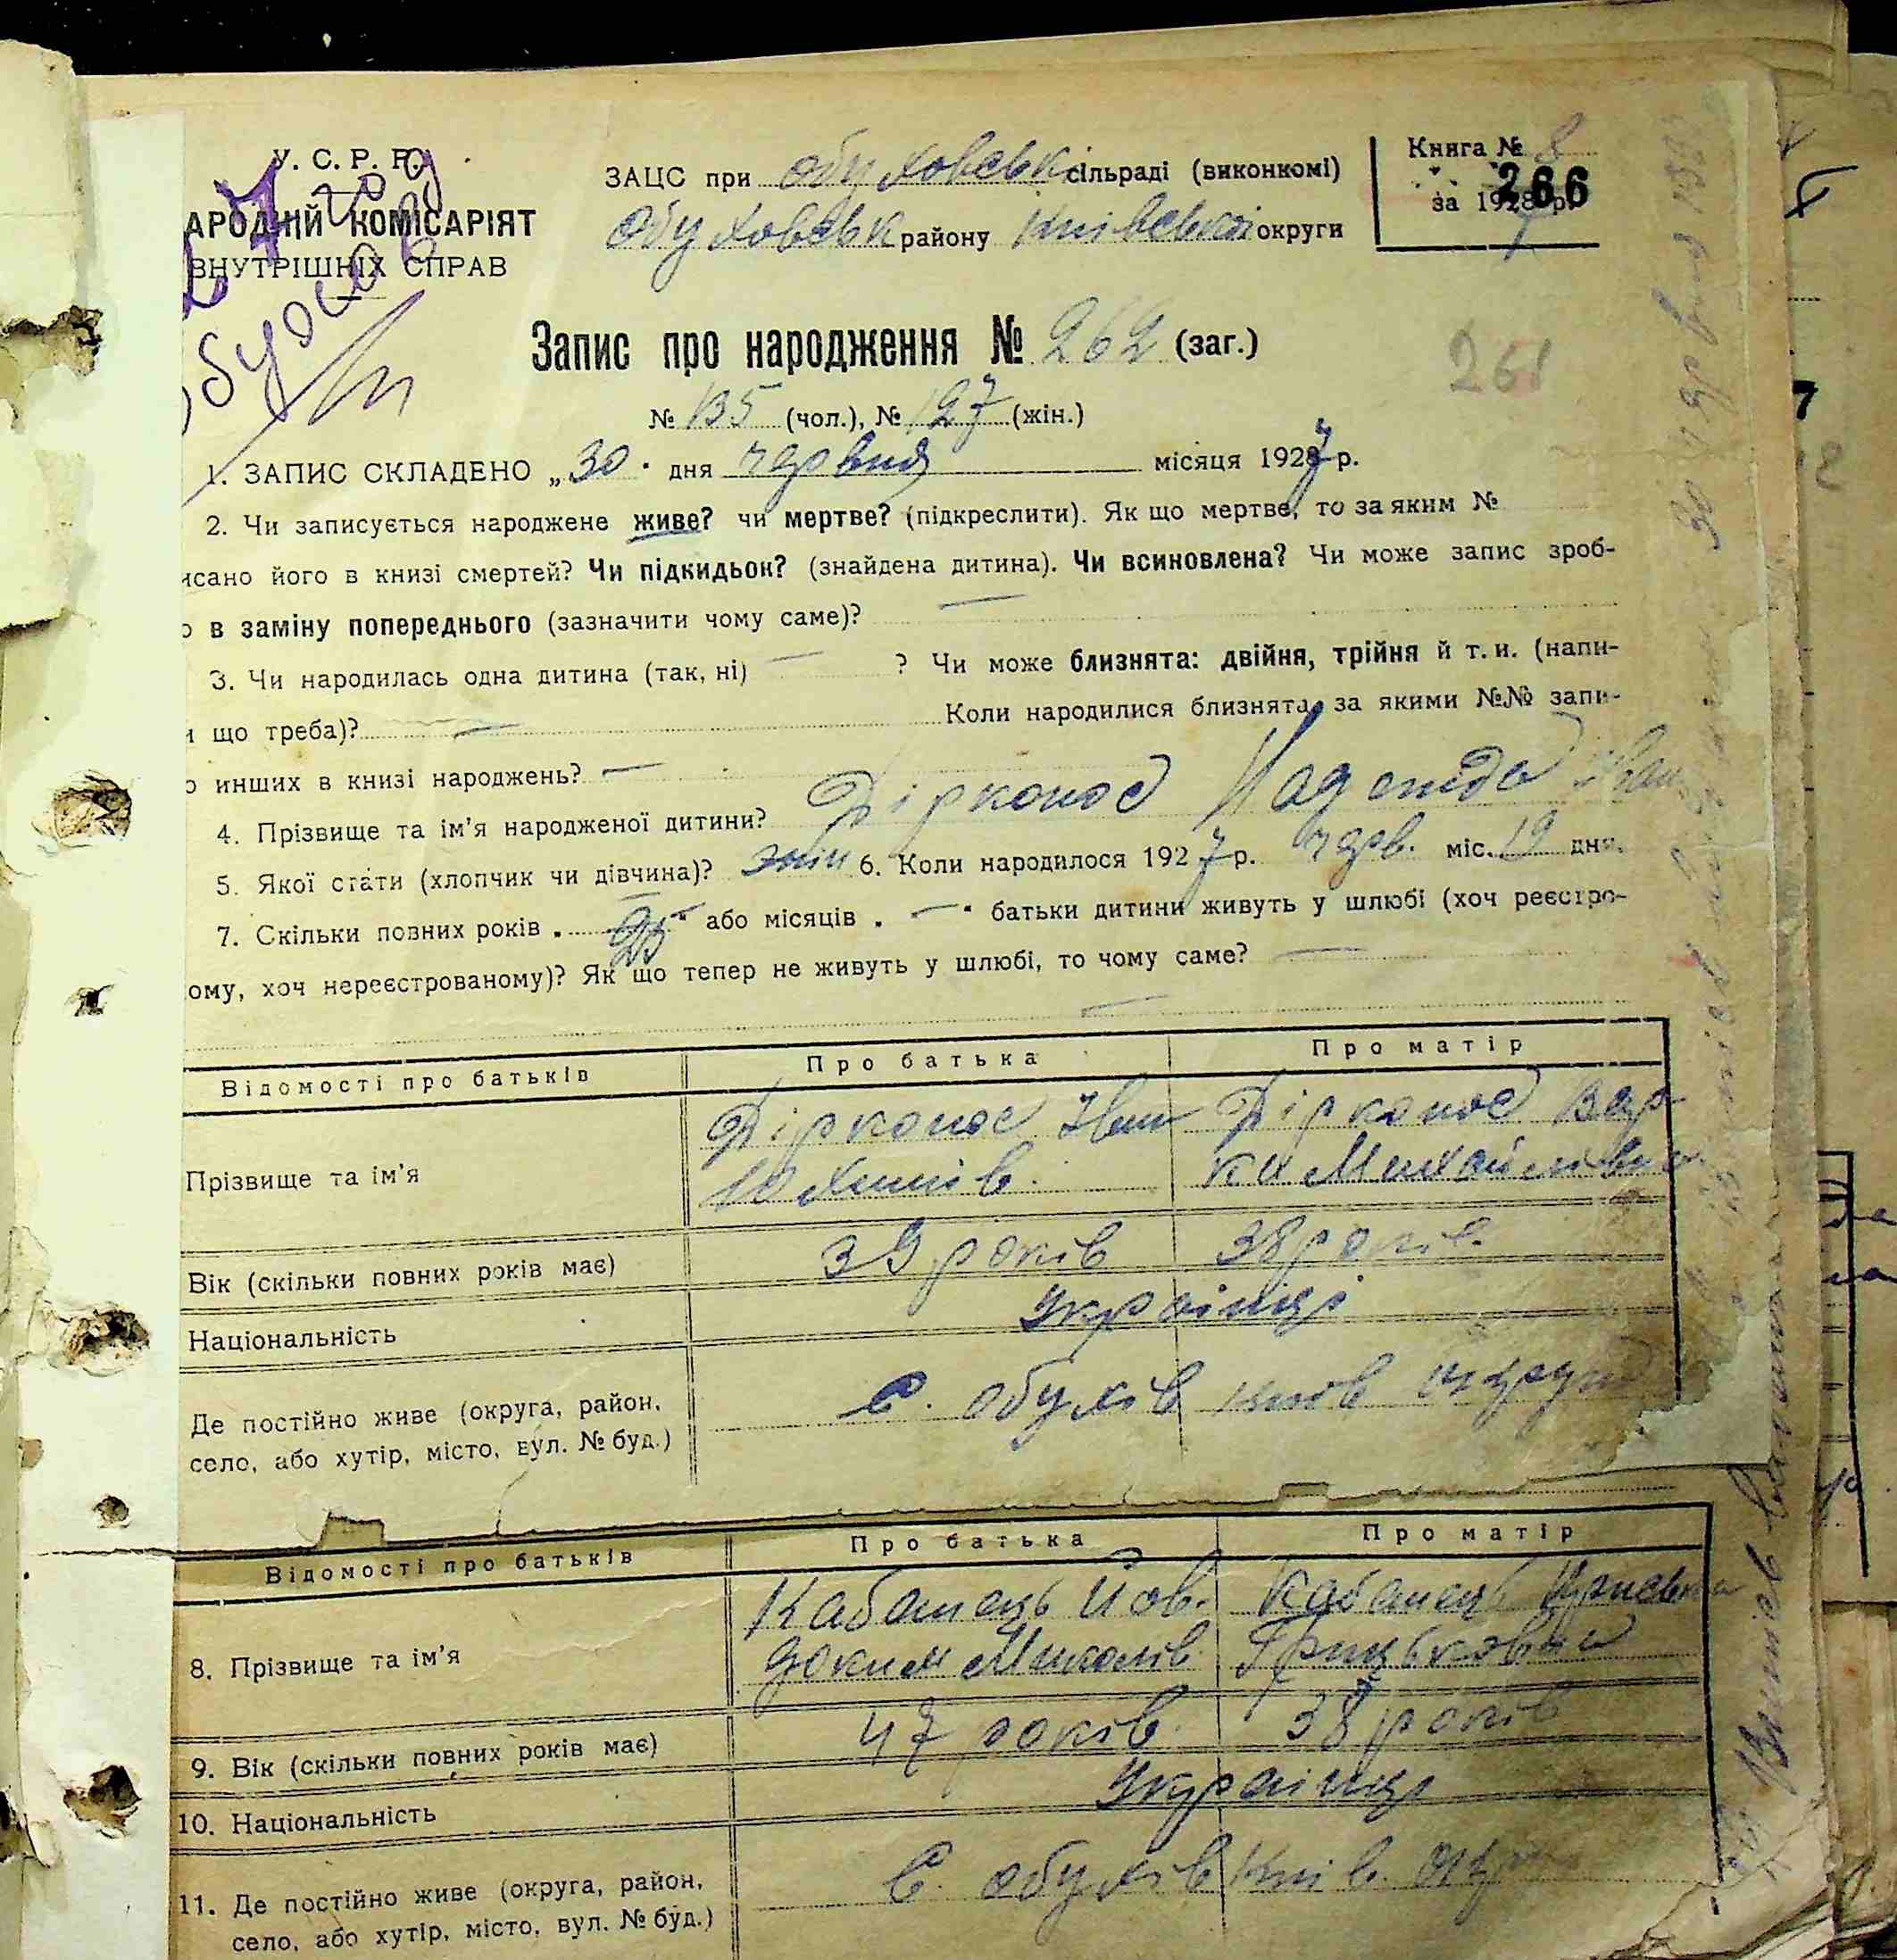 У. С. Р. Р.
АРОДНІЙ КОМІСАРІЯТ
ВНУТРІШНІХ СПРАВ
ЗАЦС при Обуховськ сільраді (виконкомі)
Обуховськ району Київської округи
Книга № 8
за 1928 р.
266
7
Запис про народження № 262 (заг.)
261
№ 135 (чол.), № 127 (жін.)
1. ЗАПИС СКЛАДЕНО „30" дня червня місяця 1927 р.
2. Чи записується народжене живе? чи мертве? (підкреслити). Як що мертве, то за яким №
исано його в книзі смертей? Чи підкидьок? (знайдена дитина). Чи всиновлена? Чи може запис зроб-
о в заміну попереднього (зазначити чому саме)? —
3. Чи народилась одна дитина (так, ні) — ? Чи може близнята: двійня, трійня й т. и. (напи-
и що треба)? — Коли народилися близнята, за якими №№ запи-
о инших в книзі народжень? —
4. Прізвище та ім'я народженої дитини? Дірконос Надежда Іван
5. Якої стати (хлопчик чи дівчина)? жін 6. Коли народилося 1927 р. черв. міс. 19 дня.
7. Скільки повних років „ 25 " або місяців „ — " батьки дитини живуть у шлюбі (хоч реєстро-
ому, хоч нереєстрованому)? Як що тепер не живуть у шлюбі, то чому саме? —
Відомості про батьків Про батька Про матір
Прізвище та ім'я Дірконос Іван Дірконос Вар-
Юхимів. ка Михайлівна
Вік (скільки повних років має) 39 років 38 років
Національність Українці
Де постійно живе (округа, район, с. Обухів Київ округи
село, або хутір, місто, вул. № буд.)
Відомості про батьків Про батька Про матір
8. Прізвище та ім'я Кабанець Йов. Кабанець
доким Миколів Грицьковна
9. Вік (скільки повних років має) 47 років. 38 років
10. Національність Українці
11. Де постійно живе (округа, район, с. Обухів Київ. окр
село, або хутір, місто, вул. № буд.)